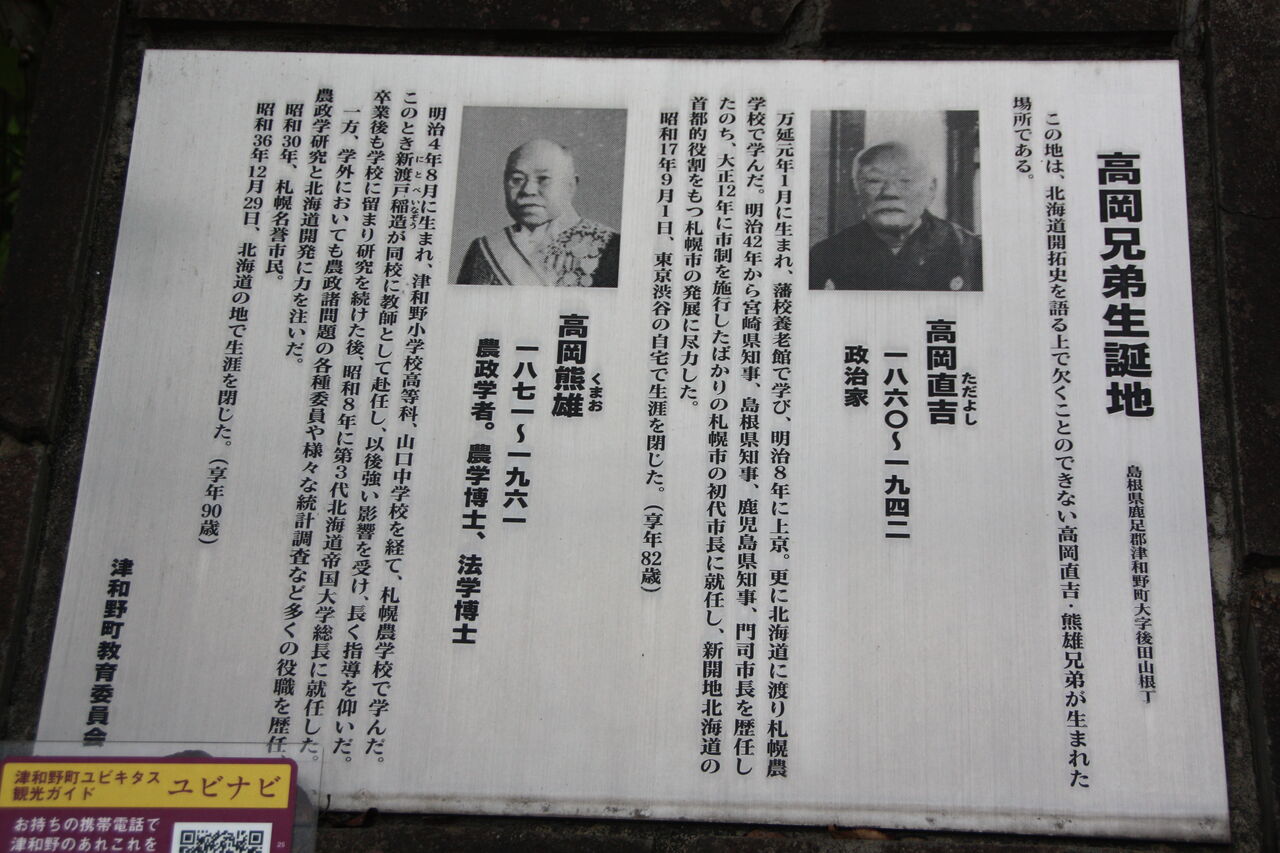 高岡兄弟生誕地
島根県鹿足郡津和野町大字後田山根丁
この地は、北海道開拓史を語る上で欠くことのできない高岡直吉・熊雄兄弟が生まれた
場所である。
高岡直吉
ただよし
一八六〇〜一九四二
政治家
万延元年1月に生まれ、藩校養老館で学び、明治8年に上京。更に北海道に渡り札幌農
学校で学んだ。明治42年から宮崎県知事、島根県知事、鹿児島県知事、門司市長を歴任し
たのち、大正12年に市制を施行したばかりの札幌市の初代市長に就任し、新開地北海道の
首都的役割をもつ札幌市の発展に尽力した。
昭和17年9月1日、東京渋谷の自宅で生涯を閉じた。（享年82歳）
高岡熊雄
くまお
一八七一〜一九六一
農政学者。農学博士、法学博士
明治4年8月に生まれ、津和野小学校高等科、山口中学校を経て、札幌農学校で学んだ。
このとき新渡戸稲造が同校に教師として赴任し、以後強い影響を受け、長く指導を仰いだ。
にとべ いなぞう
卒業後も学校に留まり研究を続けた後、昭和8年に第3代北海道帝国大学総長に就任した。
一方、学外においても農政諸問題の各種委員や様々な統計調査など多くの役職を歴任、
農政学研究と北海道開発に力を注いだ。
昭和30年、札幌名誉市民。
昭和36年12月29日、北海道の地で生涯を閉じた。（享年90歳）
津和野町教育委員会
津和野町ユビキタス
観光ガイド
ユビナビ
お持ちの携帯電話で
津和野のあれこれを
25